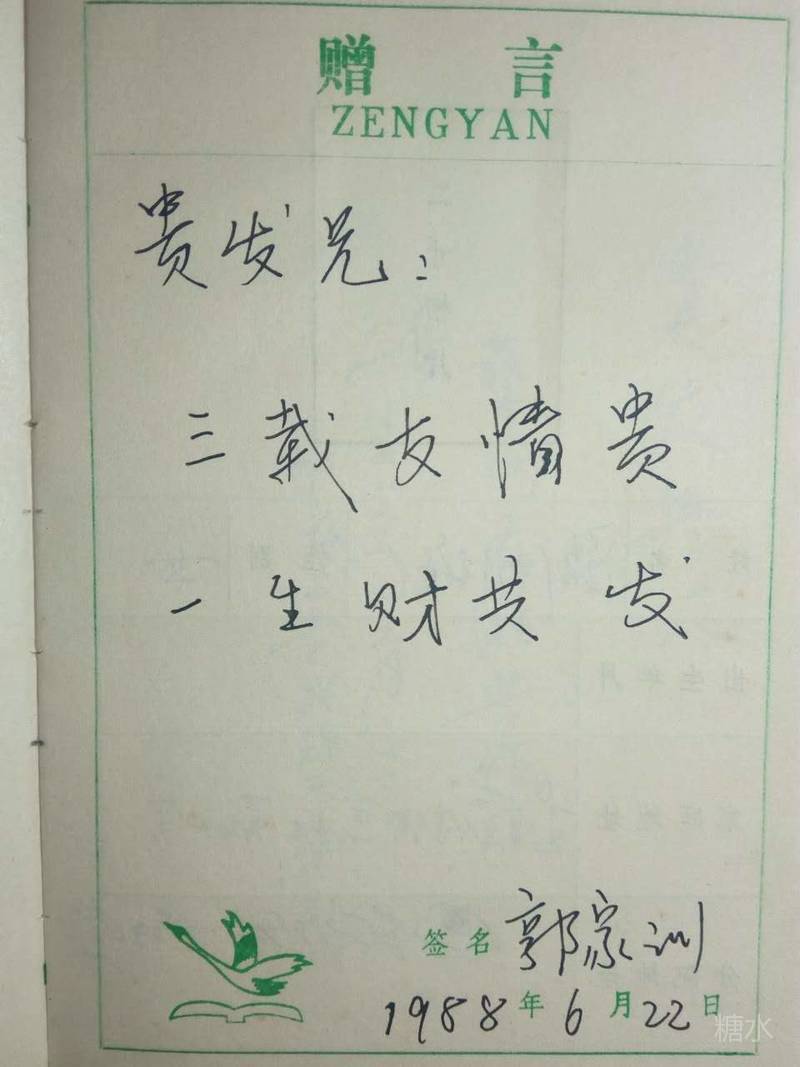 赠 言
ZENGYAN
贵发兄：
三载友情贵
一生财共发
签名 郭家训
1988年6月22日
糖水